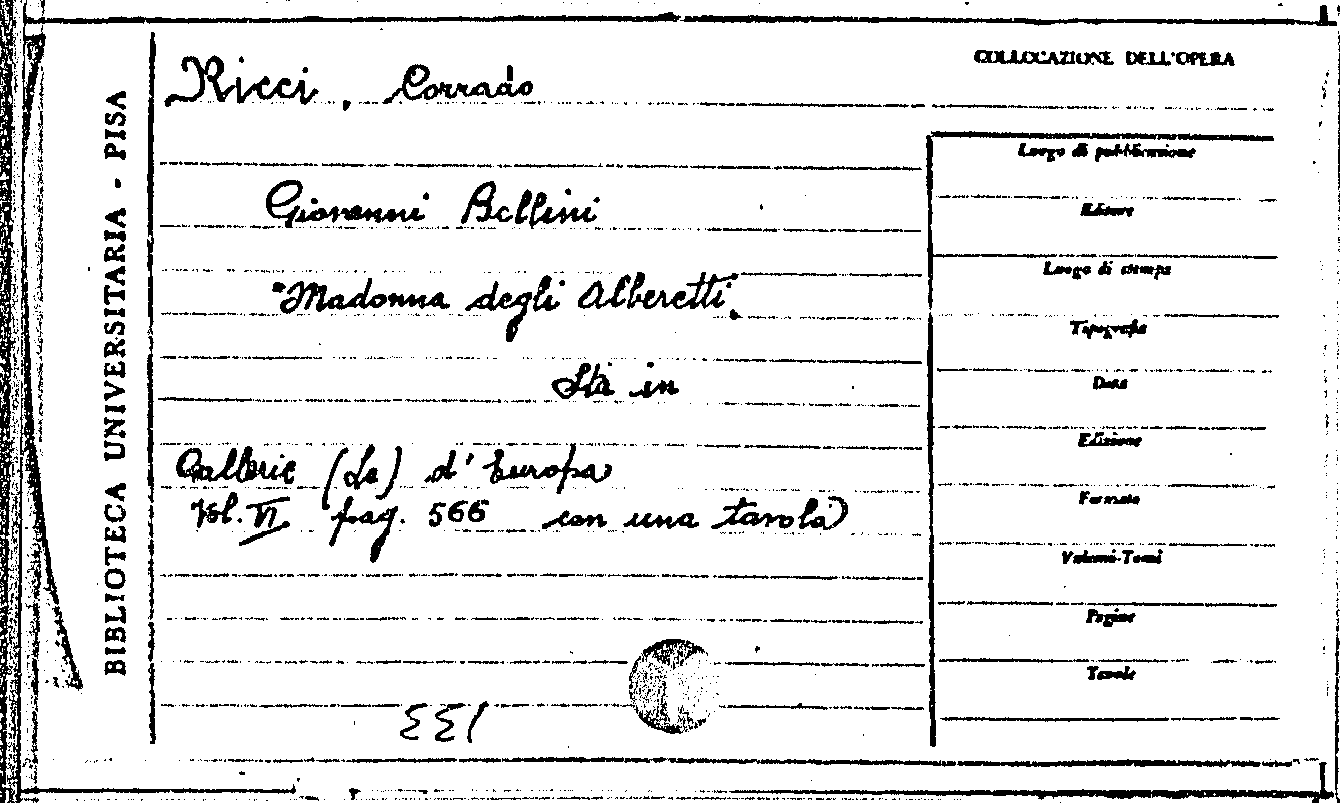 BIBLIOTECA UNIVERSITARIA - PISA
Ricci, Corrado
COLLOCAZIONE DELL'OPERA
Giovanni Bellini
"Madonna degli Alberetti"
Sta in
Gallerie (Le) d'Europa
Vol. VI pag. 566 con una tavola)
Luogo di pubblicazione
Editore
Luogo di stampa
Tipografia
Data
Edizione
Formato
Volumi-Tomi
Pagine
Tavole